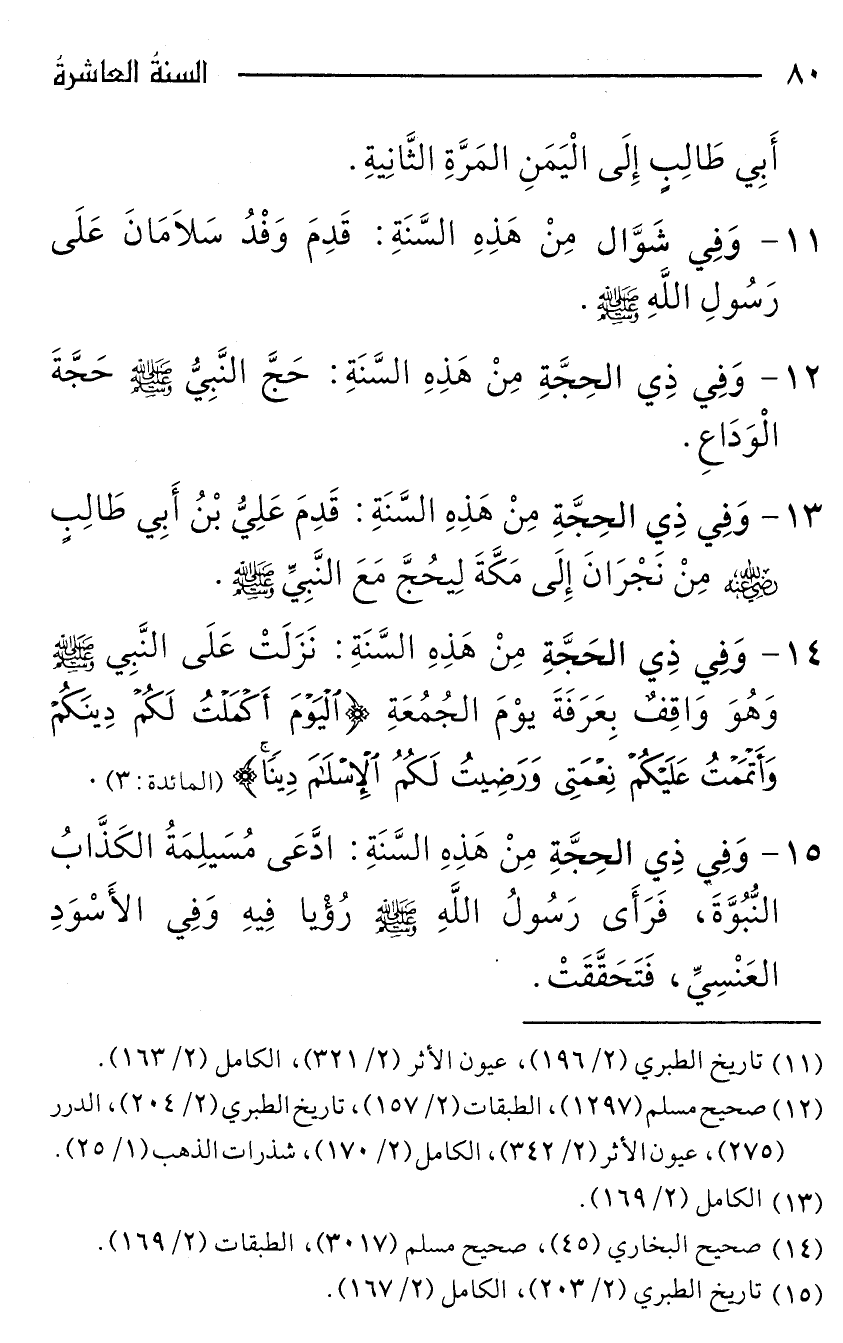 ٨٠ السنةُ العاشرةُ
أَبِي طَالِبٍ إِلَى الْيَمَنِ المَرَّةِ الثَّانِيَةِ.
١١- وَفِي شَوَّال مِنْ هَذِهِ السَّنَةِ: قَدِمَ وَفْدُ سَلاَمَانَ عَلَى
رَسُولِ اللَّهِ ﷺ.
١٢- وَفِي ذِي الحِجَّةِ مِنْ هَذِهِ السَّنَةِ: حَجَّ النَّبِيُّ ﷺ حَجَّةَ
الْوَدَاعِ.
١٣- وَفِي ذِي الحِجَّةِ مِنْ هَذِهِ السَّنَةِ: قَدِمَ عَلِيُّ بْنُ أَبِي طَالِبٍ
رضي الله عنه مِنْ نَجْرَانَ إِلَى مَكَّةَ لِيحُجَّ مَعَ النَّبِيِّ ﷺ.
١٤- وَفِي ذِي الحَجَّةِ مِنْ هَذِهِ السَّنَةِ: نَزَلَتْ عَلَى النَّبِي ﷺ
وَهُوَ وَاقِفٌ بِعَرَفَةَ يوْمَ الجُمُعَةِ ﴿ٱلْيَوْمَ أَكْمَلْتُ لَكُمْ دِينَكُمْ
وَأَتْمَمْتُ عَلَيْكُمْ نِعْمَتِى وَرَضِيتُ لَكُمُ ٱلْإِسْلَٰمَ دِينًاۚ﴾ (المائدة: ٣).
١٥- وَفِي ذِي الحِجَّةِ مِنْ هَذِهِ السَّنَةِ: ادَّعَى مُسَيلِمَةُ الكَذَّابُ
النُّبُوَّةَ، فَرَأَى رَسُولُ اللَّهِ ﷺ رُؤْيا فِيهِ وَفِي الأَسْوَدِ
العَنْسِيِّ، فَتَحَقَّقَتْ.
(١١) تاريخ الطبري (٢/ ١٩٦)، عيون الأثر (٢/ ٣٢١)، الكامل (٢/ ١٦٣).
(١٢) صحيح مسلم (١٢٩٧)، الطبقات (٢/ ١٥٧)، تاريخ الطبري (٢/ ٢٠٤)، الدرر
(٢٧٥)، عيون الأثر (٢/ ٣٤٢)، الكامل (٢/ ١٧٠)، شذرات الذهب (١/ ٢٥).
(١٣) الكامل (٢/ ١٦٩).
(١٤) صحيح البخاري (٤٥)، صحيح مسلم (٣٠١٧)، الطبقات (٢/ ١٦٩).
(١٥) تاريخ الطبري (٢/ ٢٠٣)، الكامل (٢/ ١٦٧).